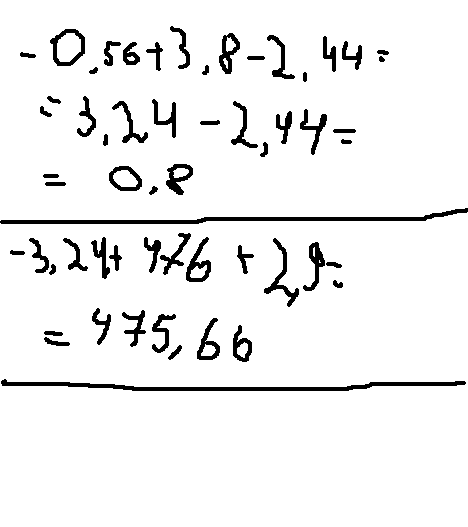 -0,56+3,8-2,44=
=3,24-2,44=
= 0,8
-3,24+476+2,9=
=475,66